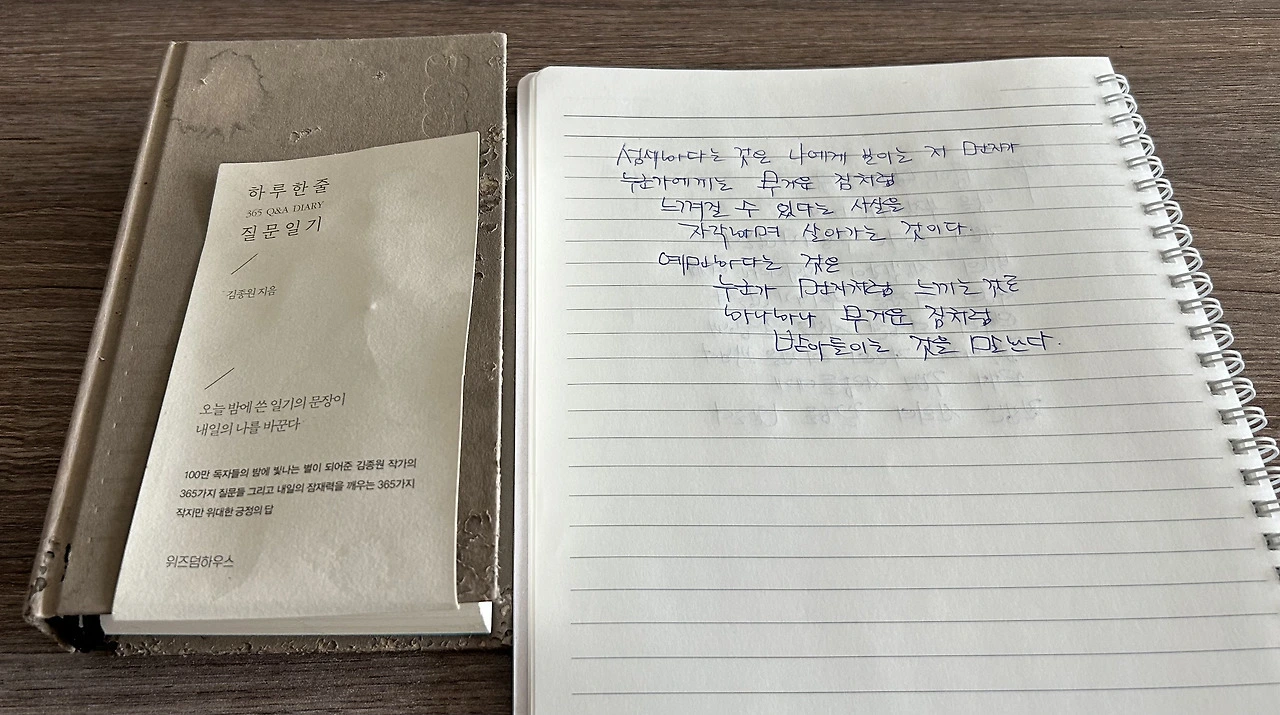 하루 한 줄
365 Q&A DIARY
질문 일기
김종원 지음
오늘 밤에 쓴 일기의 문장이
내일의 나를 바꾼다
100만 독자들의 밤에 빛나는 별이 되어준 김종원 작가의
365가지 질문들 그리고 내일의 잠재력을 깨우는 365가지
작지만 위대한 긍정의 답
위즈덤하우스
섬세하다는 것은 나에게 보이는 저 먼지가
누군가에게는 무거운 짐처럼
느껴질 수 있다는 사실을
자각하며 살아가는 것이다.
예민하다는 것은
누군가 먼지처럼 느끼는 것도
하나하나 무거운 짐처럼
받아들이는 것을 말한다.